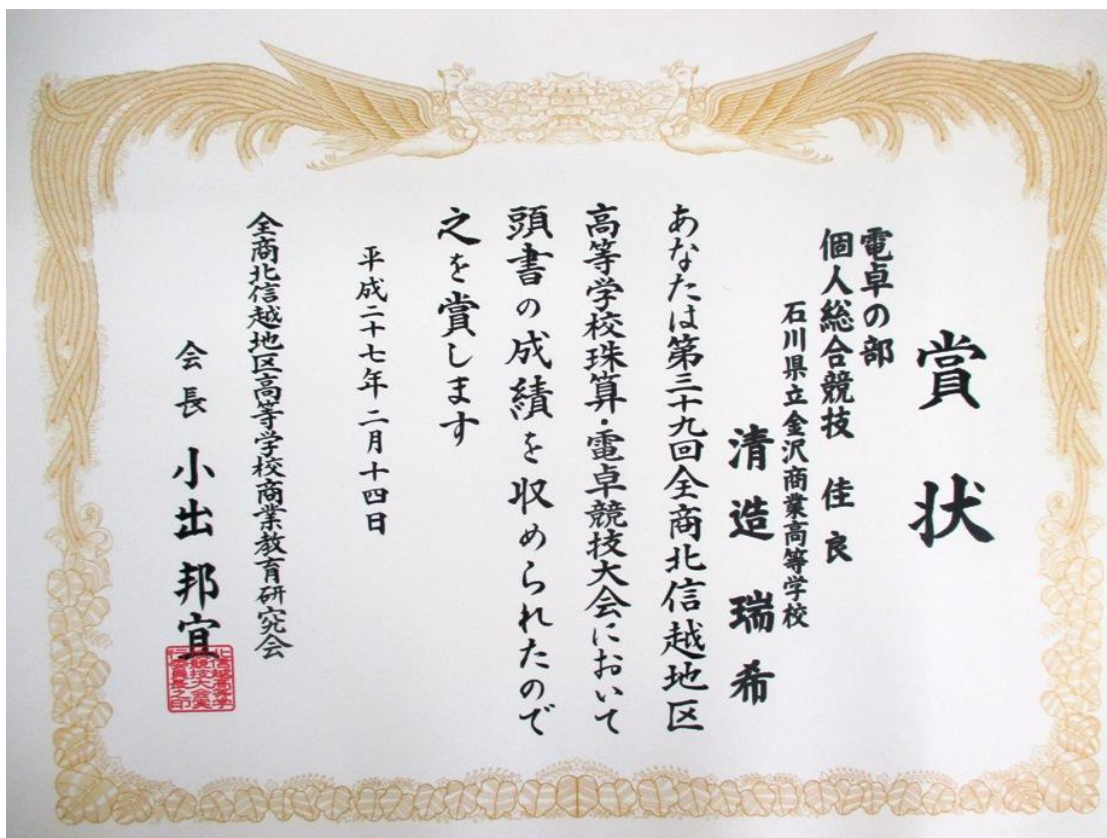 賞状
電卓の部
個人総合競技 佳良
石川県立金沢商業高等学校
清造 瑞希
あなたは第三十九回全商北信越地区
高等学校珠算・電卓競技大会において
頭書の成績を収められたので
之を賞します
平成二十七年二月十四日
全商北信越地区高等学校商業教育研究会
会長 小出 邦宜